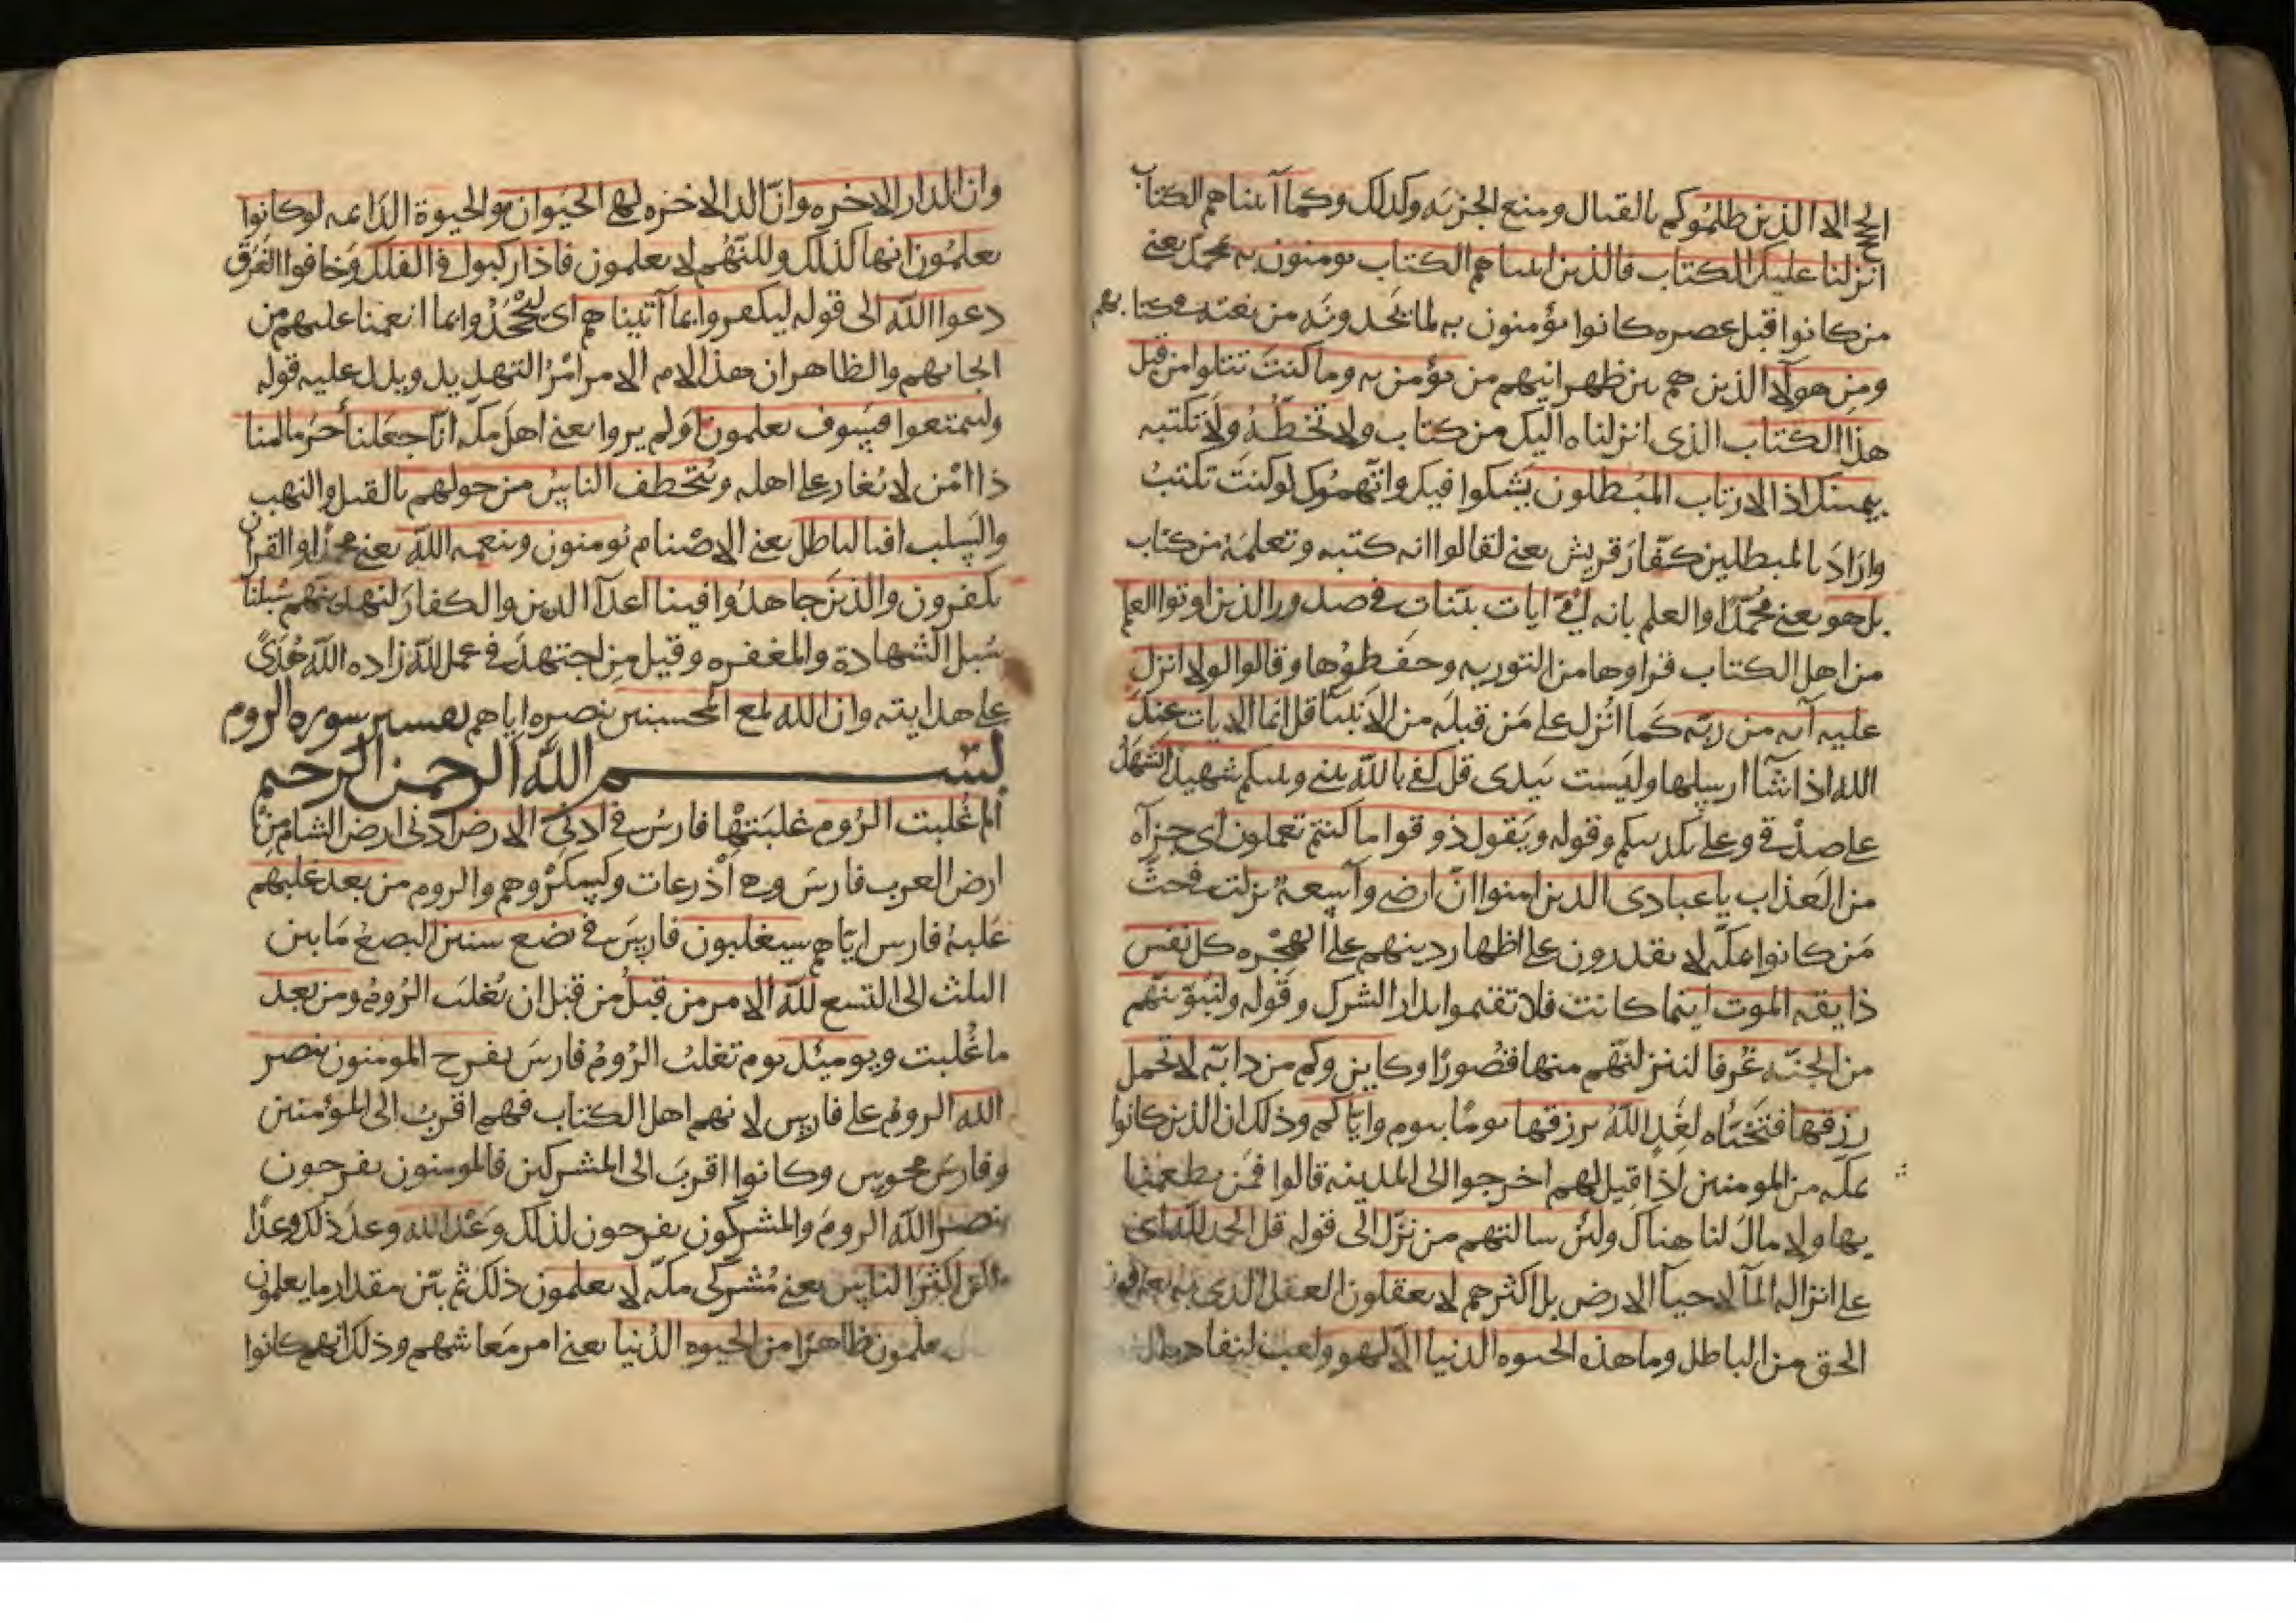 الحج الا الذين ظلموكم بالقتال ومنع الجزيه وكذلك وكما آتيناهم الكتاب
انزلنا عليك الكتاب فالذين اتيناهم الكتاب يومنون به محمد يعنى
من كانوا قبل عصره كانوا يؤمنون به لما يجدونه من نعته فى كتابهم
ومن هولآ الذين هم بين ظهرانيهم من يؤمن به وما كنت تتلوا من قبل
هذا الكتاب الذى انزلناه اليك من كتاب ولا تخطّه ولا تكتبه
بيمينك اذا لارتاب المبطلون يشكوا فيك واتّهموك لو كنت تكتب
واراد بالمبطلين كفّار قريش يعنى لقالوا انه كتبه وتعلمه من كتاب
بل هو يعنى محمّدًا والعلم بانه امّى ايات بيّنات فى صدور الذين اوتوا العلم
من اهل الكتاب قراوها من التوريه وحفظوها وقالوا لولا انزل
عليه آيه من ربّه كما انزل على من قبله من الانبيآ قل انما الايات عند
الله اذا شآ ارسلها وليست بيدى قل كفى بالله بينى وبينكم شهيدا يشهد
على صدقى وعلى تكذيبكم وقوله ويقول ذوقوا ما كنتم تعملون اى جزآه
من العذاب يا عبادى الذين امنوا انّ ارضى وآسعة نزلت فى حثّ
من كانوا بمكّه لا يقدرون على اظهار دينهم على الهجره كل نفس
ذايقه الموت اينما كانت فلا تقيموا بدار الشرك وقوله ولنبوّينّهم
من الجنّه غرفا لننزلنّهم منها قصورًا وكاين وكم من دابّه لا تحمل
رزقها فتخبّاه لغدٍ الله يرزقها يومًا بيوم وايّاكم وذلك ان الذين كانوا
بمكه من المومنين اذا قيل لهم اخرجوا الى المدينه قالوا فمن يطعمنا
بها ولا مال لنا هناك ولئن سالتهم من نزّل الى قوله قل الحمد لله اى
على انزاله المآ لاحيآ الارض بل اكثرهم لا يعقلون العقل الذى به يعرفون
الحق من الباطل وما هذه الحيوه الدنيا الّا لهو ولعب لنفادها
وان الدار الاخره وانّ الدا الاخره لهى الحيوان هو الحيوة الدّايمه لو كانوا
يعلمون انها كذلك وللنّهم لا يعلمون فاذا ركبوا فى الفلك وخافوا الغرق
دعوا الله الى قوله ليكفروا بما آتيناهم اى ليجحدوا بما انعمنا عليهم من
انجايهم والظاهر ان هذا الام الامر امر التهديد ويدل عليه قوله
وليتمتعوا فسوف يعلمون اولم يروا يعنى اهل مكه انّا جعلنا حرما امنا
ذا امن لا يغار على اهله ويتخطف الناس من حولهم بالقتل والنهب
والسلب افبالباطل يعنى الاصنام يومنون وبنعمه الله يعنى محمدًا والقران
يكفرون والذين جاهدوا فينا اعدآ الدين والكفار لنهدينّهم سبلنا
سبل الشهادة والمغفره وقيل من اجتهد فى عمل لله زاده الله هدًى
على هدايته وان الله لمع المحسنين بنصره اياهم تفسير سوره الروم
بسم الله الرحمن الرحيم
الم غلبت الروم غلبتها فارس فى ادنى الارض ادنى ارض الشام من
ارض العرب فارس وهى اذرعات وكسكر وهم والروم من بعد غلبهم
غلبة فارس ايّاهم سيغلبون فارس فى بضع سنين البضع ما بين
الثلث الى التسع لله الامر من قبل من قبل ان تغلب الروم ومن بعد
ما غلبت ويومئذ يوم تغلب الروم فارس يفرح المومنون بنصر
الله الروم على فارس لانهم اهل الكتاب فهم اقرب الى المؤمنين
وفارس مجوس وكانوا اقرب الى المشركين فالمومنون يفرحون
بنصر الله الروم والمشركون يفرحون لذلك وعد الله وعد ذلك وعدًا
ولكن اكثر الناس يعنى مشركى مكّه لا يعلمون ذلك ثم بيّن مقدار ما يعلمون
يعلمون ظاهرًا من الحيوه الدّنيا يعنى امر معاشهم وذلك انهم كانوا